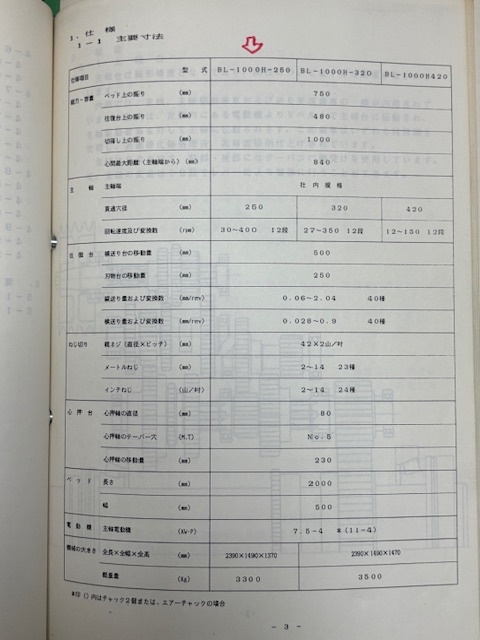 1. 仕 様
1-1 主要寸法
仕様項目 型 式 BL-1000H-250 BL-1000H-320 BL-1000H420
能力・容量 ベッド上の振り (mm) 750
往復台上の振り (mm) 480
切落し上の振り (mm) 1000
心間最大距離(主軸端から)(mm) 840
主 軸 主軸端 社内規格
貫通穴径 (mm) 250 320 420
回転速度及び変換数 (rpm) 30~400 12段 27~350 12段 12~150 12段
往復台 横送り台の移動量 (mm) 500
刃物台の移動量 (mm) 250
縦送り量および変換数 (mm/rev) 0.06~2.04 40種
横送り量および変換数 (mm/rev) 0.028~0.9 40種
ねじ切り 親ネジ(直径×ピッチ) (mm) 42×2山/吋
メートルねじ (mm) 2~14 23種
インチねじ (山/吋) 2~14 24種
心押台 心押軸の直径 (mm) 80
心押軸のテーパー穴 (M.T) No.5
心押軸の移動量 (mm) 230
ベッド 長さ (mm) 2000
幅 (mm) 500
電動機 主軸電動機 (KW-P) 7.5-4 *(11-4)
機械の大きさ 全長×全幅×全高 (mm) 2390×1490×1370 2390×1490×1470
総重量 (Kg) 3300 3500
*印()内はチャック2個または、エアーチャックの場合
- 3 -